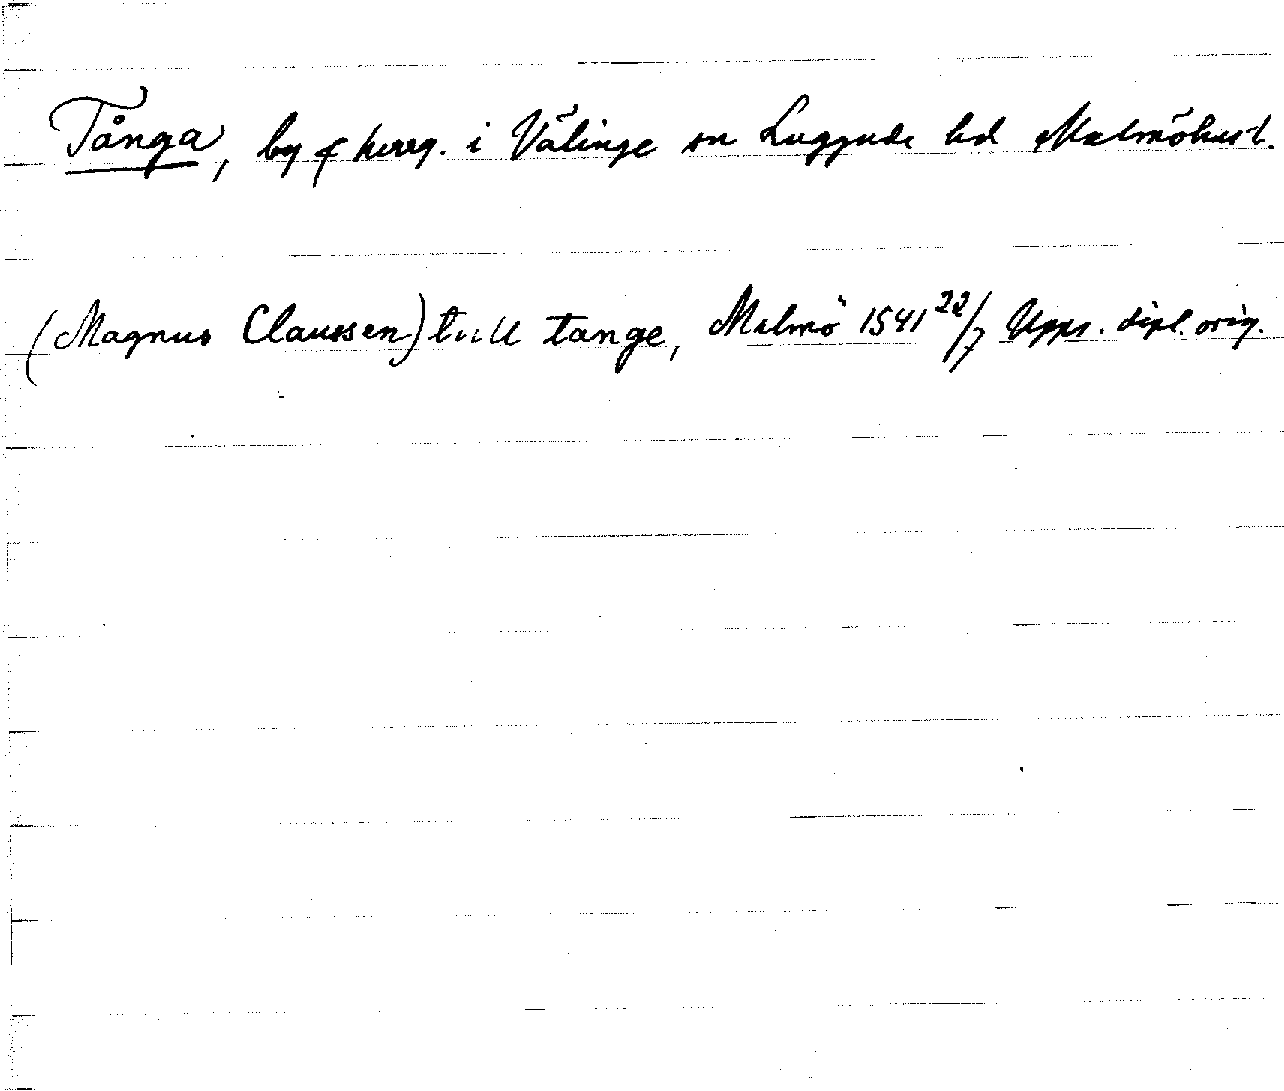 Tånga, by & herrg. i Välinge sn Luggude hd Malmöhusl.
(Magnus Claussen) till tange, Malmö 1541 22/7 Upps. dipl. orig.